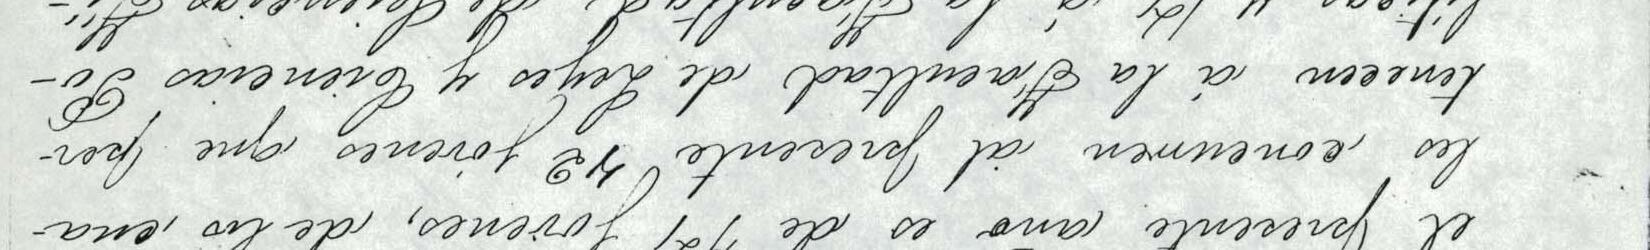 el presente año es de jóvenes, de los cua-
les concurren al presente 42 jóvenes que per-
tenecen á la Facultad de Leyes y Ciencias Po-
líticas y á la Facultad de Ciencias